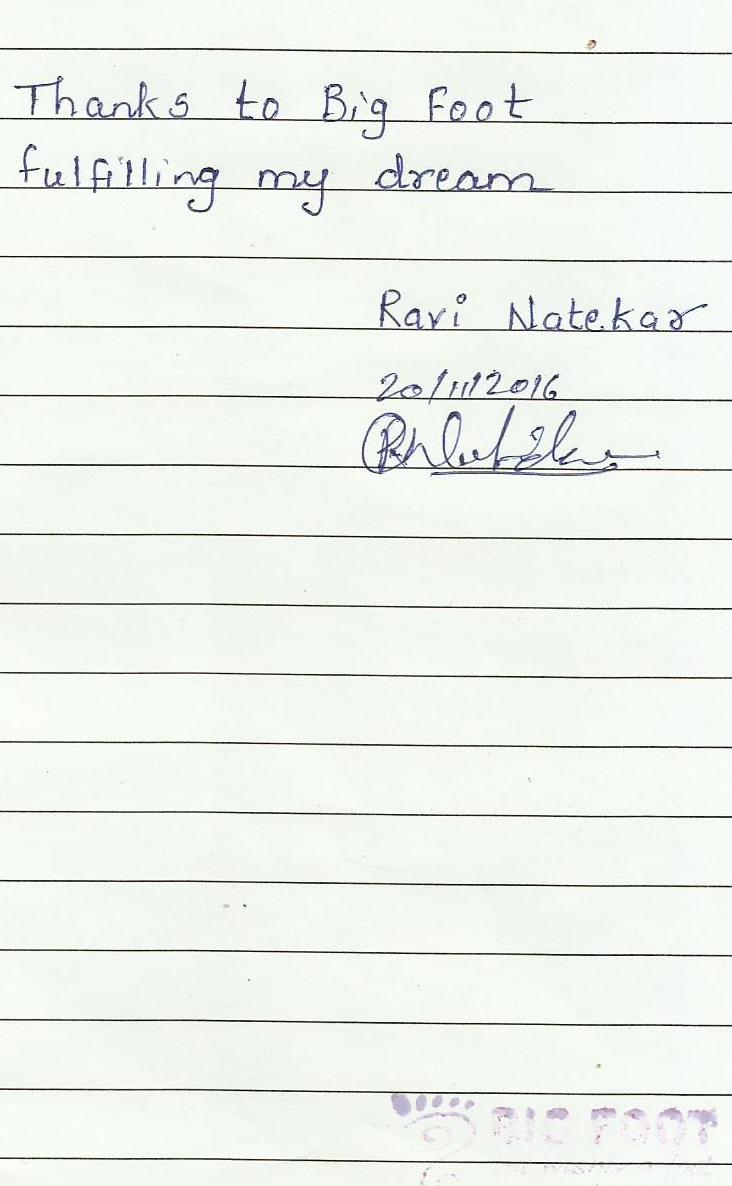 Thanks to Big Foot
fulfilling my dream
Ravi Natekar
20/11/2016
BIG FOOT